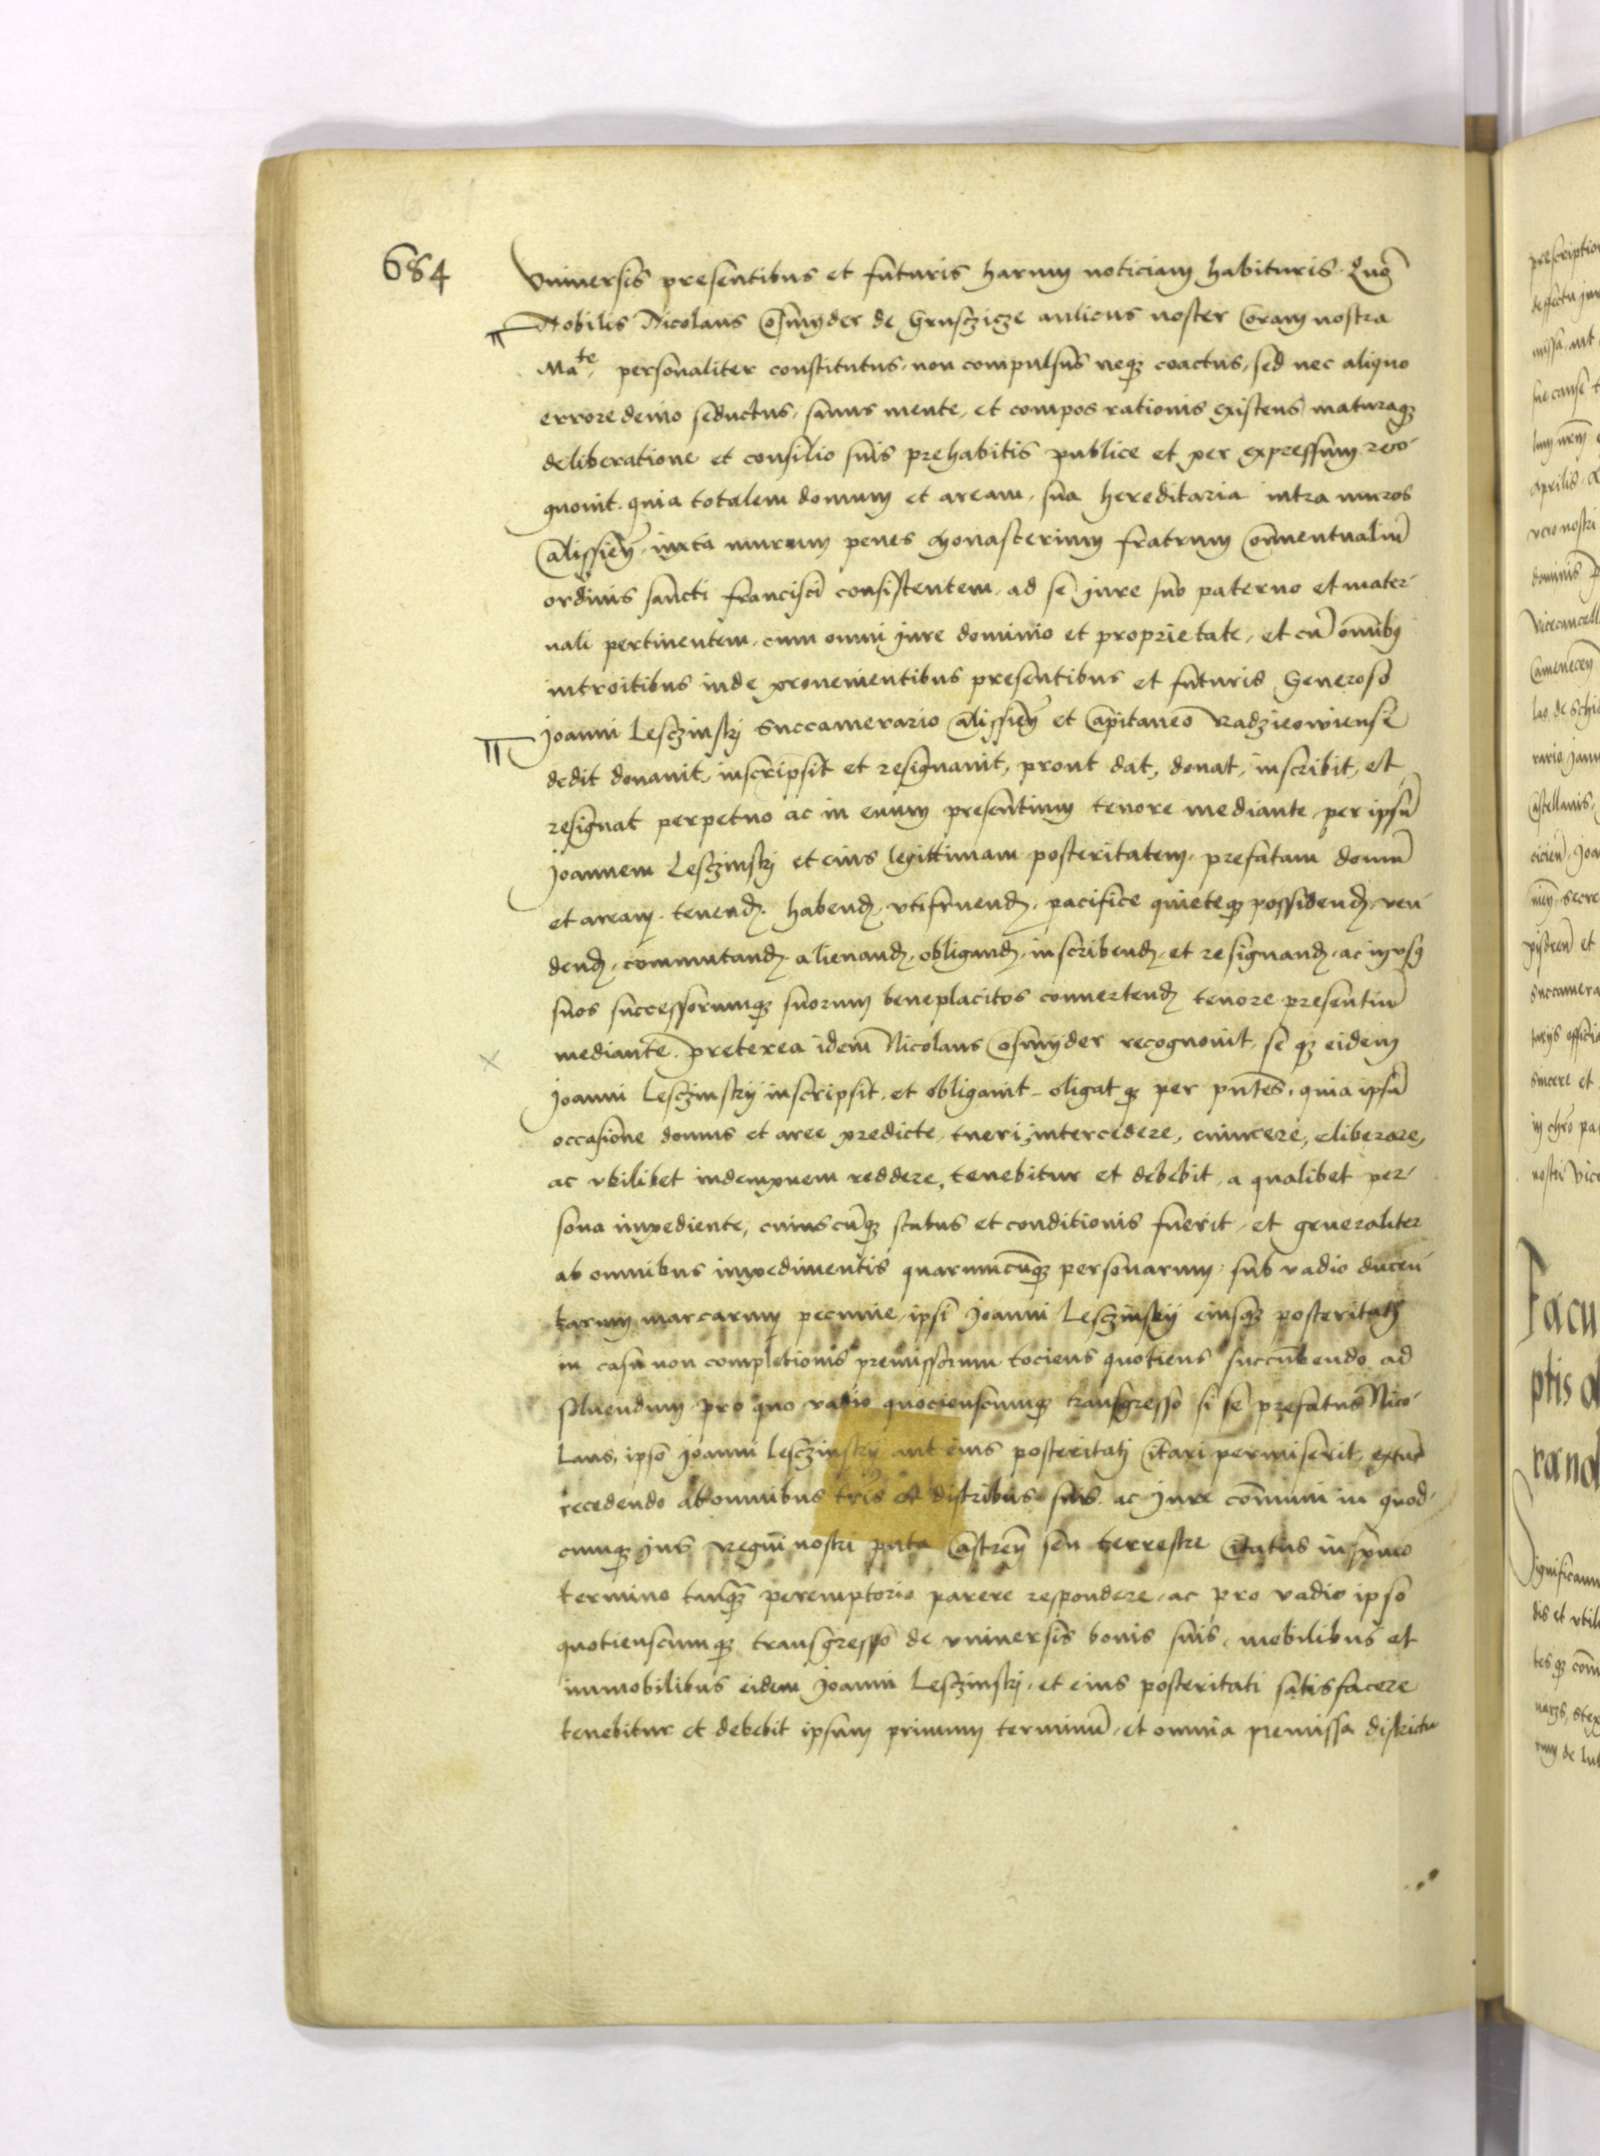 684
Vniversis presentibus et futuris harum noticiam habituris. Quō
Nobilis Nicolaus Osmyder de Gruschicze aulicus noster Coram nostra
Ma^te. personaliter constitutus, non compulsus neqz coactus, sed nec aliquo
errore devio seductus, sanus mente, et compos rationis existens maturaqz
deliberatione et consilio suis prehabitis publice et per expressum reco-
gnovit. quia totalem domum et aream, sua hereditaria intra muros
Calissien̄ iuxta murum penes Monasterium fratrum Conventualiū
ordinis sancti francisci consistentem, ad se jure suo paterno et mater-
nali pertinentem, cum omni jure dominio et proprietate, et cū omībus
introitibus inde provenientibus presentibus et futuris Generoso
Joanni Lesczinskj Succamerario Calissien̄ et Capitaneo Radzieowiense
dedit donauit, inscripsit et resignauit, prout dat, donat, inscribit, et
resignat perpetuo ac in euum presentium tenore mediante, per ipsū
Joannem Lesczinskj et eius legittimam posteritatem, prefatam domū
et aream. tenend. habend. vtifruend. pacifice quieteqz possidend. ven-
dend. commutand. alienand. obligand. inscribend. et resignand. ac in vsus
suos successorumqz suorum beneplacitos convertend tenore presentiū
mediante. Preterea idem Nicolaus Osmyder recognouit, se qz eidem
Joanni Lesczinskij inscripsit, et obligauit - oligat qz per pn̄tes, quia ipsū
occasione domus et aree predicte, tueri, intercedere, euincere, eliberare,
ac vbilibet indempnem reddere, tenebitur et debebit, a qualibet per-
sona impediente, cuiuscūqz status et conditionis fuerit, et generaliter
ab omnibus impedimentis quarumcūqz personarum, sub vadio ducen-
tarum marcarum pecunie, ipsi Joanni Lesczinskij eiusqz posteritati
in casu non completionis premissorum tociens quotiens succūbendo ad
soluendum pro quo vadio quociensscumqz transgresso si se prefatus Nico-
laus, ipso Joanni Lesczinskij aut eius posteritatj citari permiserit, extūc
recedendo ab omnibus tr̄is et districtibus suis ac jure cōmuni in quod-
cumqz jus Regni nostri puta Castren̄ seu terrestre Citatus in primo
termino tanqz peremptorio parere respondere, ac pro vadio ipso
quotienscumqz transgresso de vniversis bonis suis, mobilibus et
immobilibus eidem Joanni Lesczinskj, et eius posteritati satisfacere
tenebitur et debebit ipsum primum terminū, et omnia premissa districtu